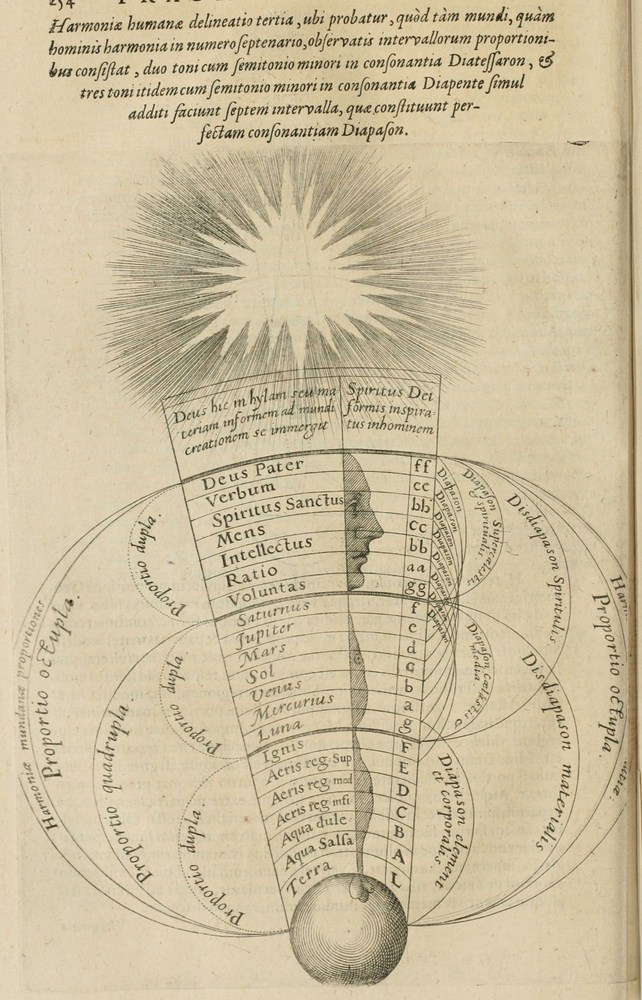 254
Harmoniæ humanæ delineatio tertia, ubi probatur, quòd tàm mundi, quàm
hominis harmonia in numero septenario, observatis intervallorum proportioni-
bus consistat, duo toni cum semitonio minori in consonantia Diatessaron, &
tres toni itidem cum semitonio minori in consonantia Diapente simul
additi faciunt septem intervalla, quæ constituunt per-
fectam consonantiam Diapason.
Deus hic in hylam seu ma
teriam informem ad mundi
creationem se immergit
Spiritus Dei
formis inspira-
tus in hominem
Deus Pater ff
Verbum ee
Spiritus Sanctus
Mens cc
Intellectus bb
Ratio aa
Voluntas gg
Saturnus f
Jupiter e
Mars d
Sol c
Venus b
Mercurius a
Luna g
Ignis F
Aeris reg. Sup E
Aeris reg. med D
Aeris reg. infi C
Aqua dulc. B
Aqua Salsa A
Terra
Proportio dupla.
Proportio dupla.
Proportio dupla.
Proportio quadrupla.
Proportio octupla.
Harmoniæ mundanæ proportiones
Diapason
Diapason
Diapason
Diapason
Diapason
Diapason
Diapason
Diapason
Diapason Spiritualis
Disdiapason Spiritualis
Diapason Cælestis
media.
Disdiapason materialis
Diapason element
et corporalis.
Proportio octupla.